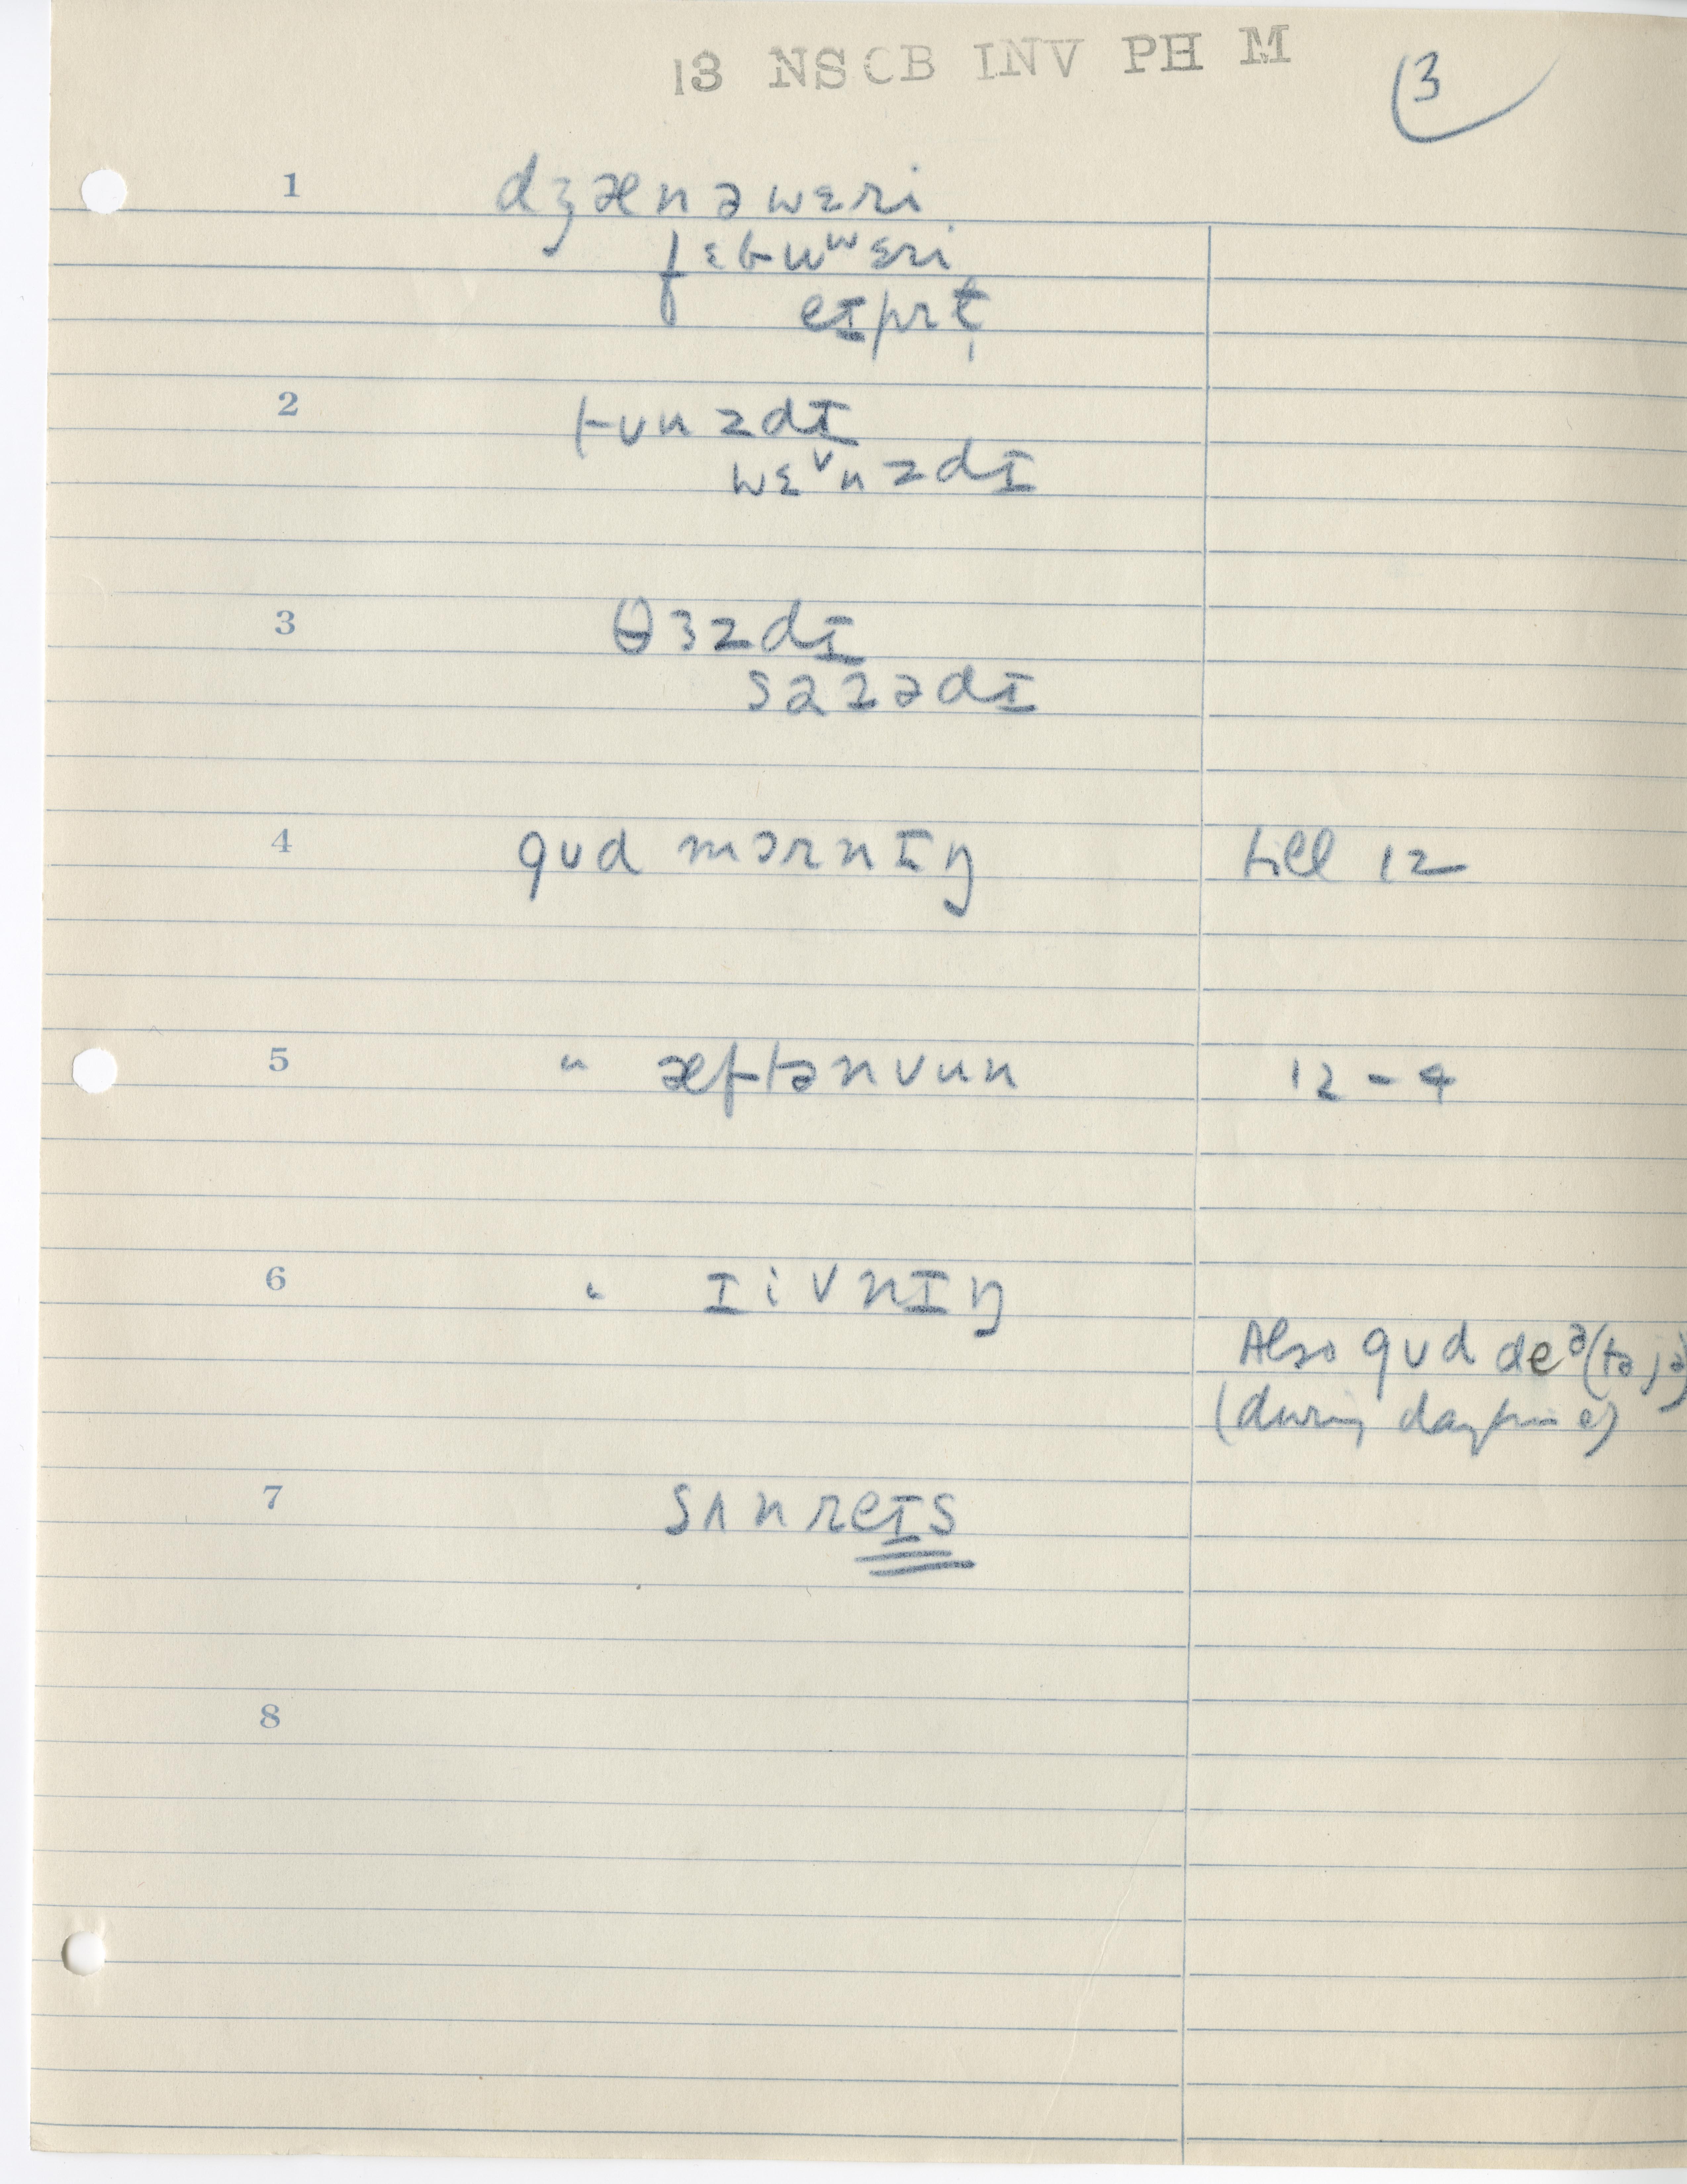 13 NSCB INV PH M
3
1 dʒænəwɛri
fɛbuʷɛri
eɪprt̩
2 tunzdɪ
wɛᵛnzdɪ
3 θɜzdɪ
sazədɪ
4 gud mɔrnɪŋ till 12
5 " æftənuun 12 - 4
6 " ɪivnɪŋ
Also gud deᵊ(tə jə)
(during daytime)
7 sʌnreɪs
8